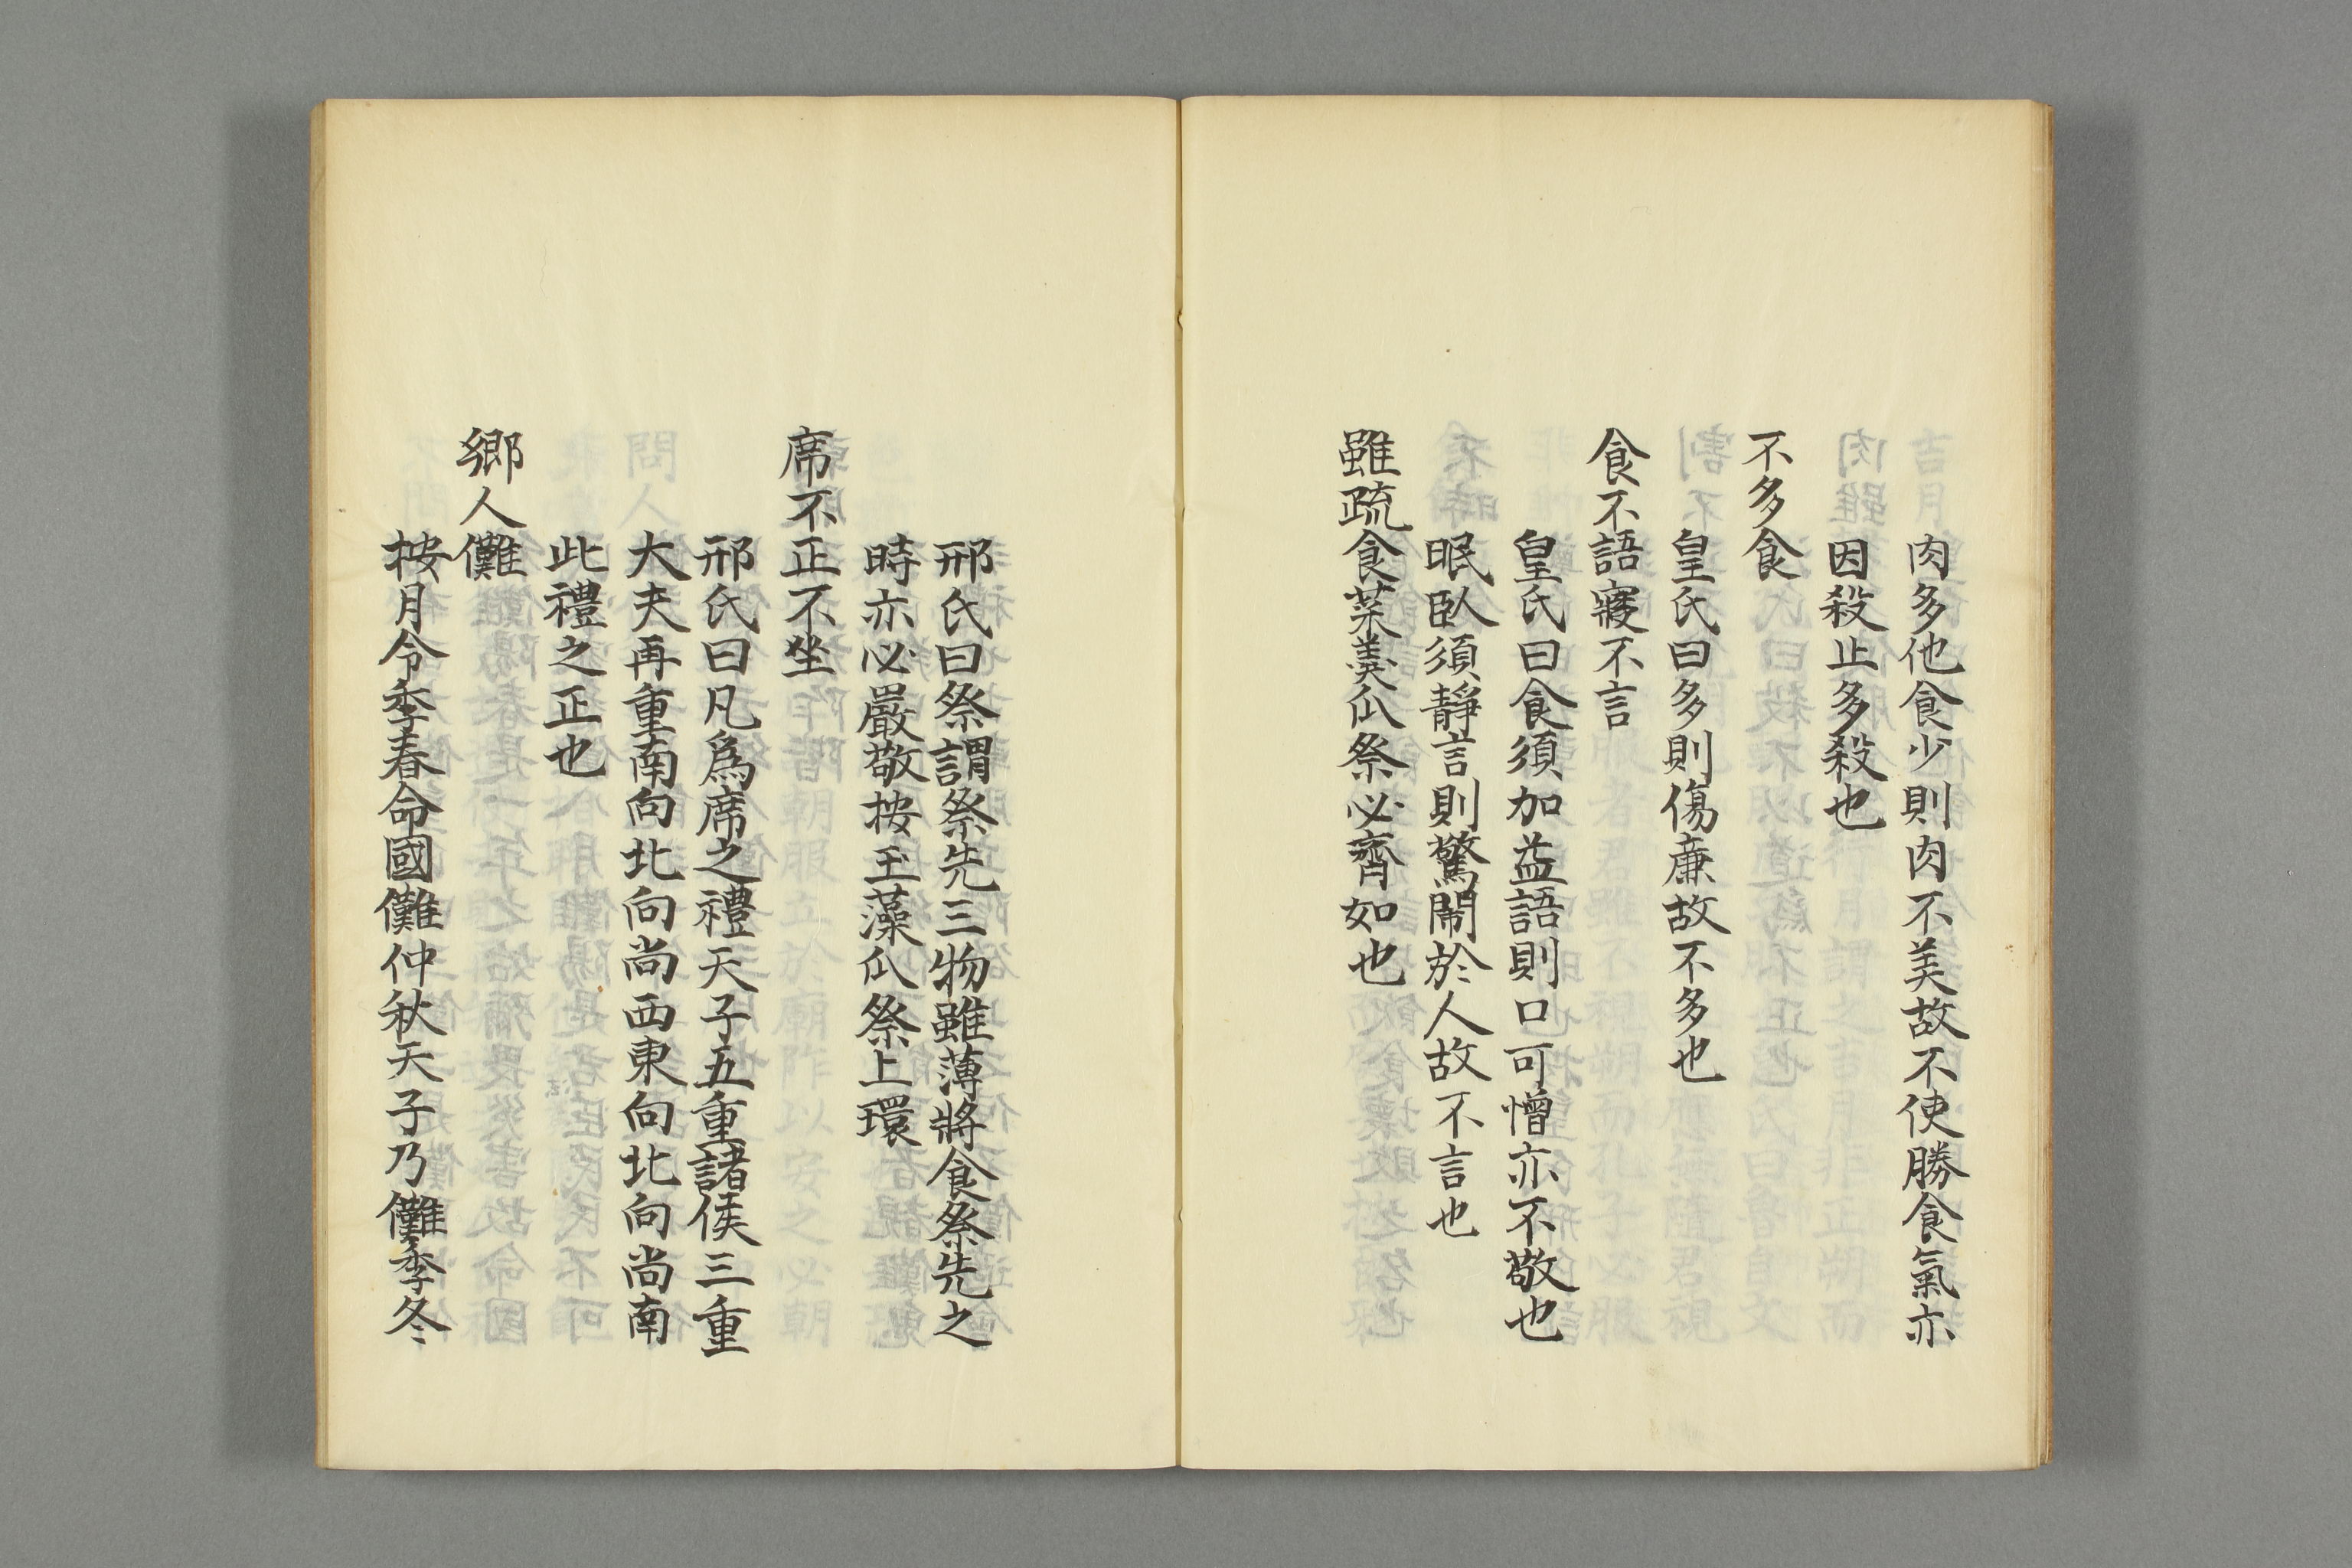 肉多他食少則肉不美故不使勝食氣亦
因殺止多殺也
不多食
皇氏曰多則傷廉故不多也
食不語寢不言
皇氏曰食須加益語則口可憎亦不敬也
眠臥須靜言則驚鬧於人故不言也
雖疏食菜羹瓜祭必齊如也
邢氏曰祭謂祭先三物雖薄將食祭先之
時亦必嚴敬按玉藻瓜祭上環
席不正不坐
邢氏曰凡爲席之禮天子五重諸侯三重
大夫再重南向北向尚西東向北向尚南
此禮之正也
鄉人儺
按月令季春命國儺仲秋天子乃儺季冬